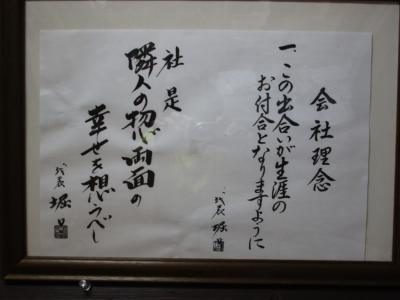 会社理念
一、この出合いが生涯の
お付合となりますように
代表 堀
社是
隣人の物心両面の
幸せを想うべし
代表 堀